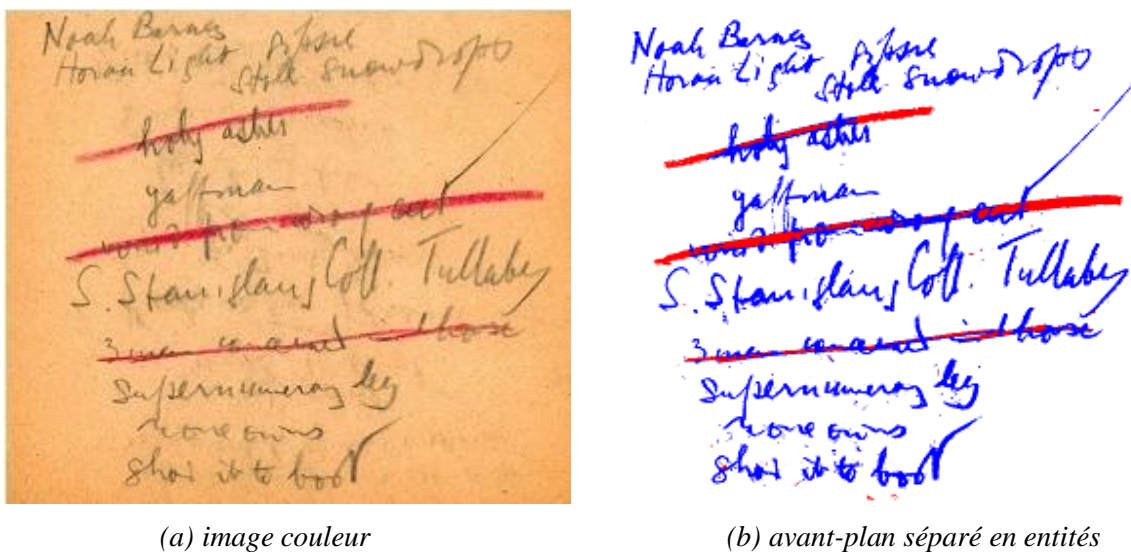 Noah Barnes
Horace Light Gipsie
stole snowdrops
holy ashes
gaffman
S. Stanislaus Coll. Tullabeg
3 men
supernumerary leg
none owns
ghos it to boot
(a) image couleur
Noah Barnes
Horace Light Gipsie
stole snowdrops
holy ashes
gaffman
S. Stanislaus Coll. Tullabeg
3 men
supernumerary leg
none owns
ghos it to boot
(b) avant-plan séparé en entités